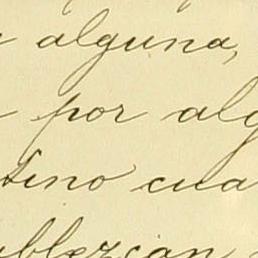 alguna,
por alg
tino cua
blezcan